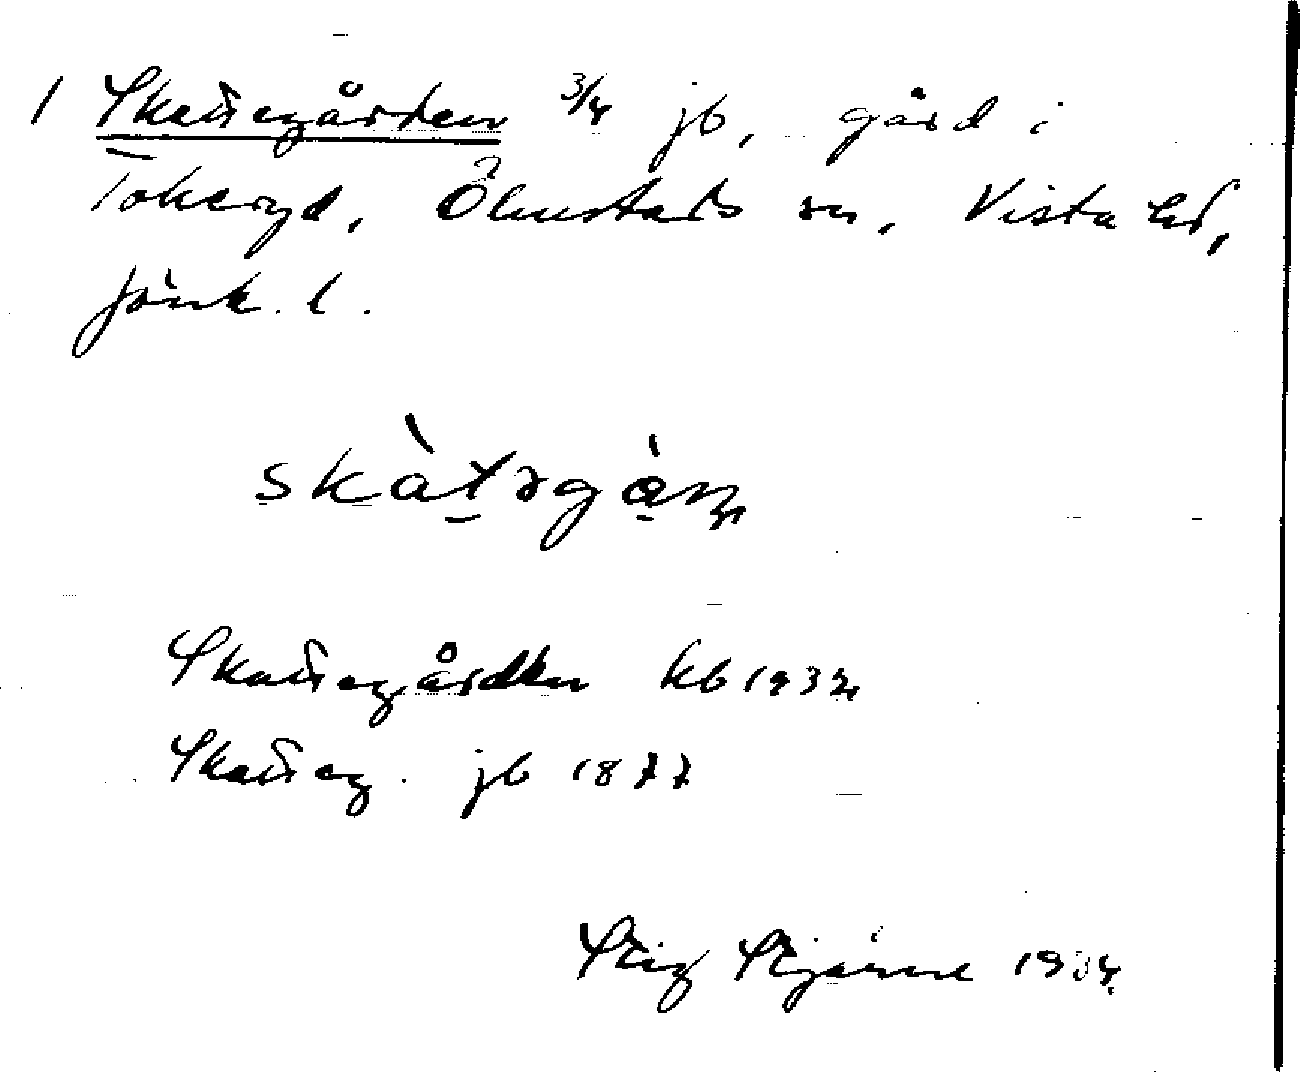 1 Skattegården 3/4 jb, gård i
Tokeryd, Ölmstads sn, Vista hd,
Jönk. l.
skàtəgå̀rn
Skattegården kb 1932
Skatteg. jb 1877
Stig Stjärne 1934